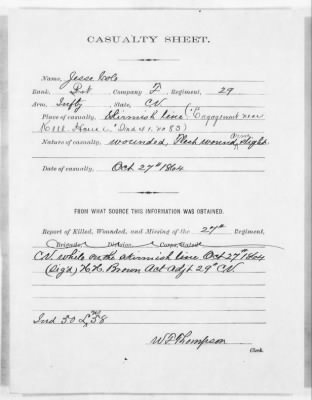 CASUALTY SHEET.
Name, Jesse Cole
Rank, Pvt Company F. Regiment, 29
Arm, Infty State, CV.
Place of casualty, Skirmish line ("Engagement near
Kell House." Ind of 1. No 83)
Nature of casualty, wounded, Flesh wound, slight.
Date of casualty, Oct 27th 1864
FROM WHAT SOURCE THIS INFORMATION WAS OBTAINED.
Report of Killed, Wounded, and Missing of the 27th Regiment,
Brigade, Division, Corps,
CV. while on the skirmish line Oct 27th 1864
(Sig'd) H.H. Brown Act Adjt 29th CV.
Ind 50
W T Thompson
Clerk.